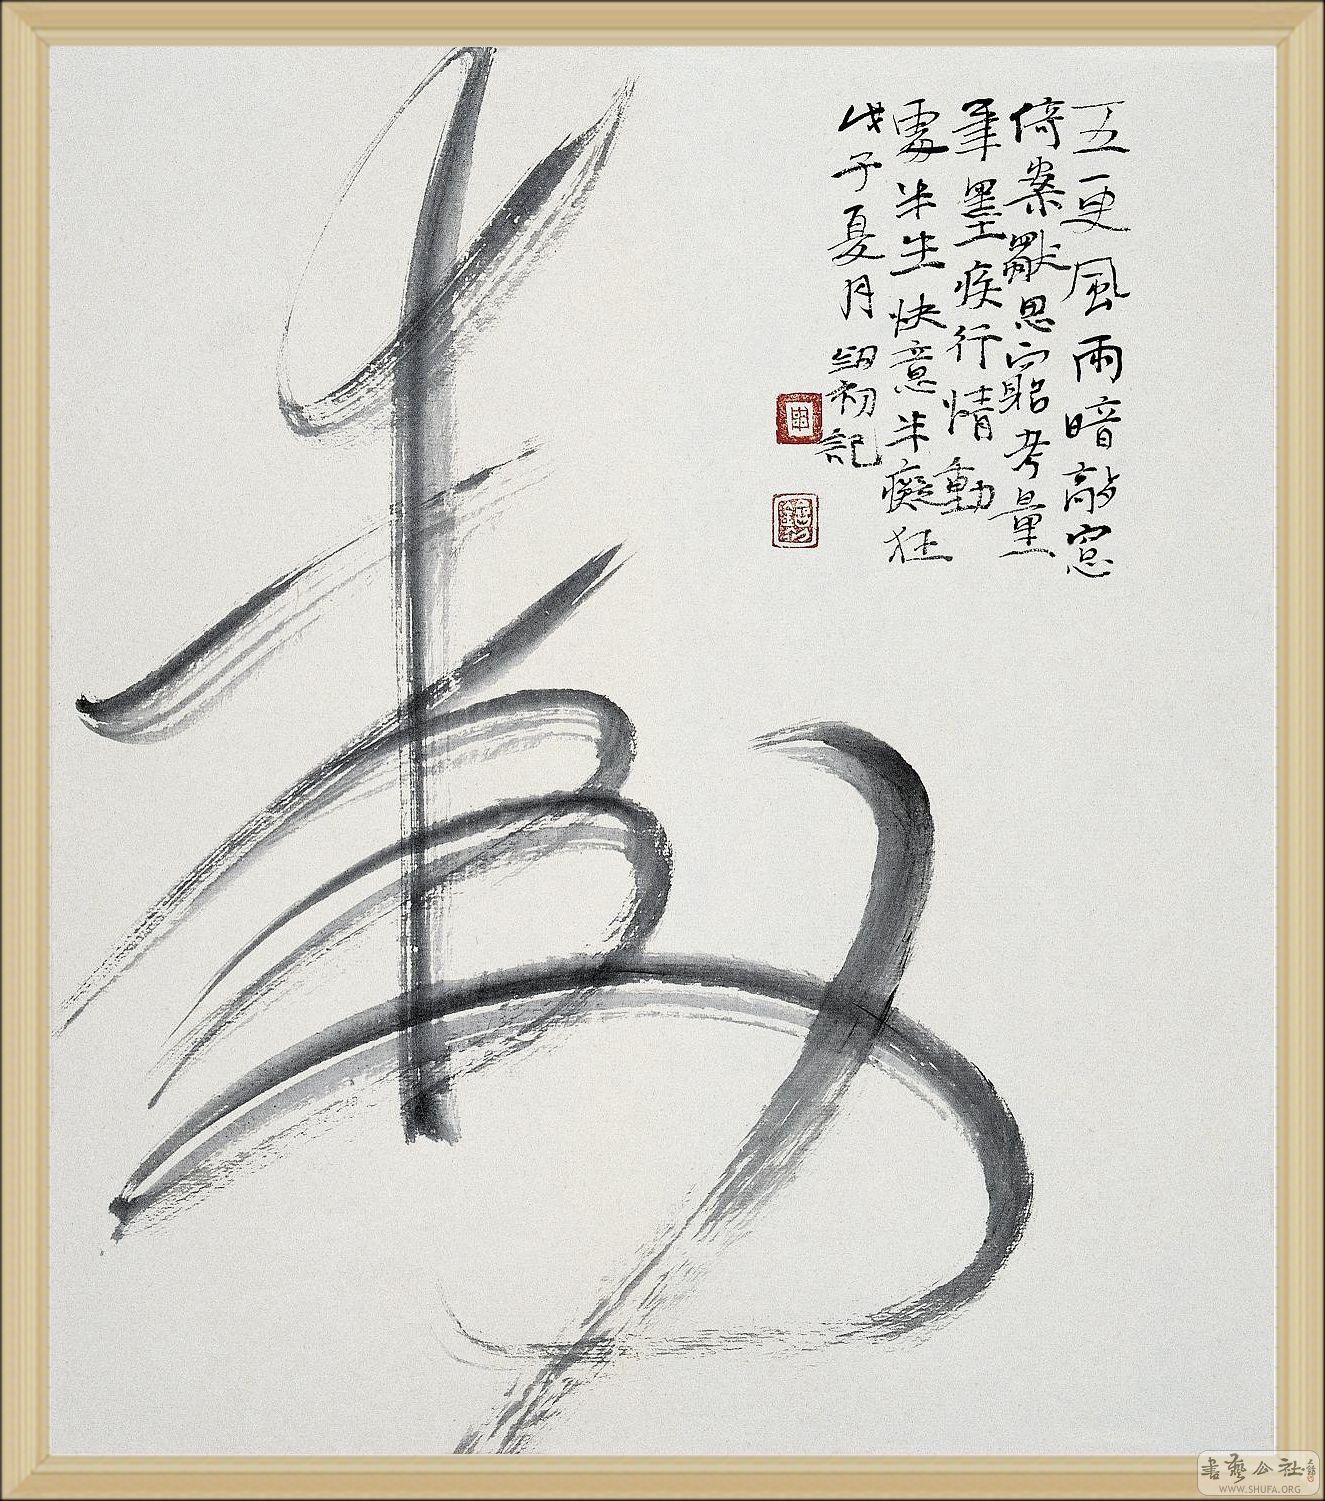 動
五更風雨暗敲窓
倚案默思窮考量
筆墨疾行情動
處半生快意半癡狂
戊子夏月紹初記
書藝公社
WWW.SHUFA.ORG